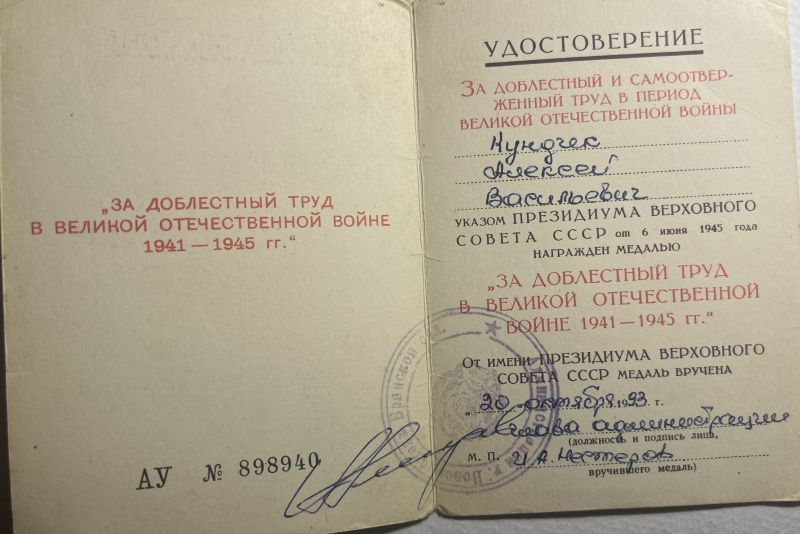 „ЗА ДОБЛЕСТНЫЙ ТРУД
В ВЕЛИКОЙ ОТЕЧЕСТВЕННОЙ ВОЙНЕ
1941 — 1945 гг.“
АУ № 898940
УДОСТОВЕРЕНИЕ
ЗА ДОБЛЕСТНЫЙ И САМООТВЕР-
ЖЕННЫЙ ТРУД В ПЕРИОД
ВЕЛИКОЙ ОТЕЧЕСТВЕННОЙ ВОЙНЫ
Алексей
Васильевич
УКАЗОМ ПРЕЗИДИУМА ВЕРХОВНОГО
СОВЕТА СССР от 6 июня 1945 года
НАГРАЖДЕН МЕДАЛЬЮ
„ЗА ДОБЛЕСТНЫЙ ТРУД
В ВЕЛИКОЙ ОТЕЧЕСТВЕННОЙ
ВОЙНЕ 1941 — 1945 гг.“
От имени ПРЕЗИДИУМА ВЕРХОВНОГО
СОВЕТА СССР МЕДАЛЬ ВРУЧЕНА
„20 октября 1993 г.
Глава администрации
(должность и подпись лица,
М. П. Нестеров
вручившего медаль)
Брянской обл.